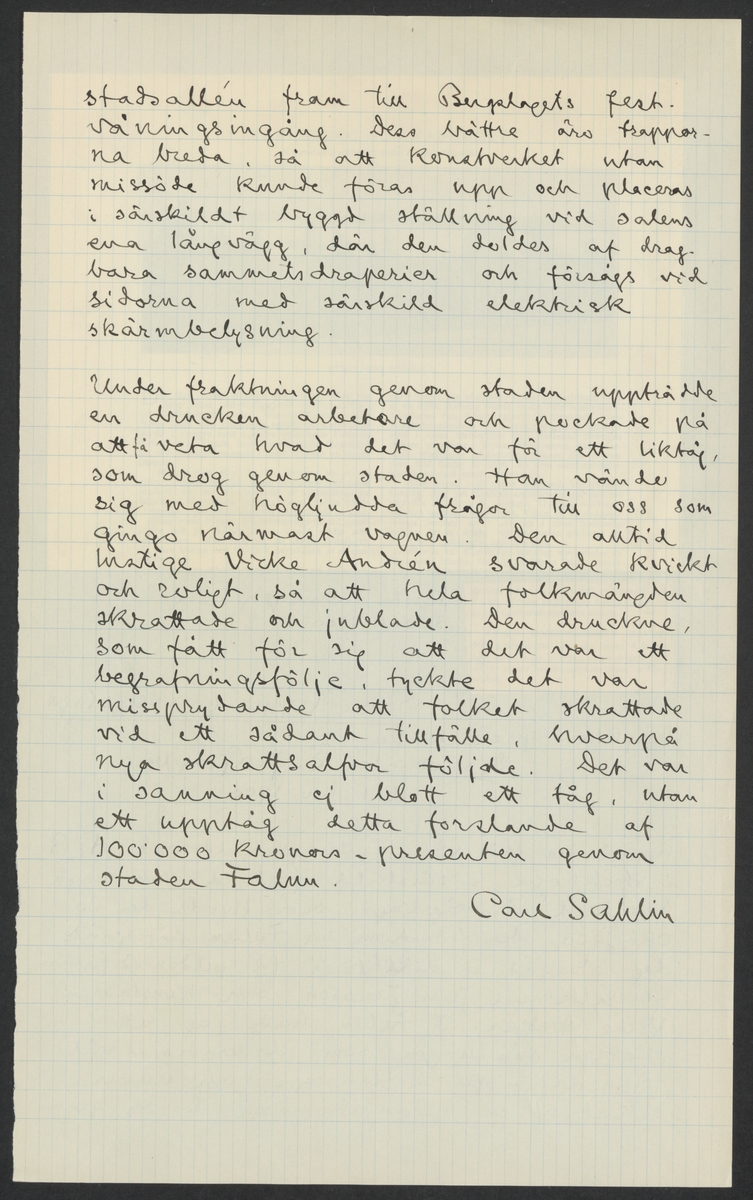 stadsallén fram till Bergslagets fest-
våningsingång. Dess bättre äro trappor-
na breda, så att konstverket utan
missöde kunde föras upp och placeras
i särskildt byggd ställning vid salens
ena långvägg, där den doldes af drag-
bara sammetsdraperier och försågs vid
sidorna med särskild elektrisk
skärmbelysning.
Under fraktningen genom staden uppträdde
en drucken arbetare och pockade på
att få veta hvad det var för ett liktåg,
som drog genom staden. Han vände
sig med högljudda frågor till oss som
gingo närmast vagnen. Den alltid
lustige Vicke Andrén svarade kvickt
och roligt, så att hela folkmängden
skrattade och jublade. Den druckne,
som fått för sig att det var ett
begrafningsfölje, tyckte det var
missprydande att folket skrattade
vid ett sådant tillfälle, hvarpå
nya skrattsalfvor följde. Det var
i sanning ej blott ett tåg, utan
ett upptåg detta forslande af
100.000 kronors-presenten genom
staden Falun.
Carl Sahlin